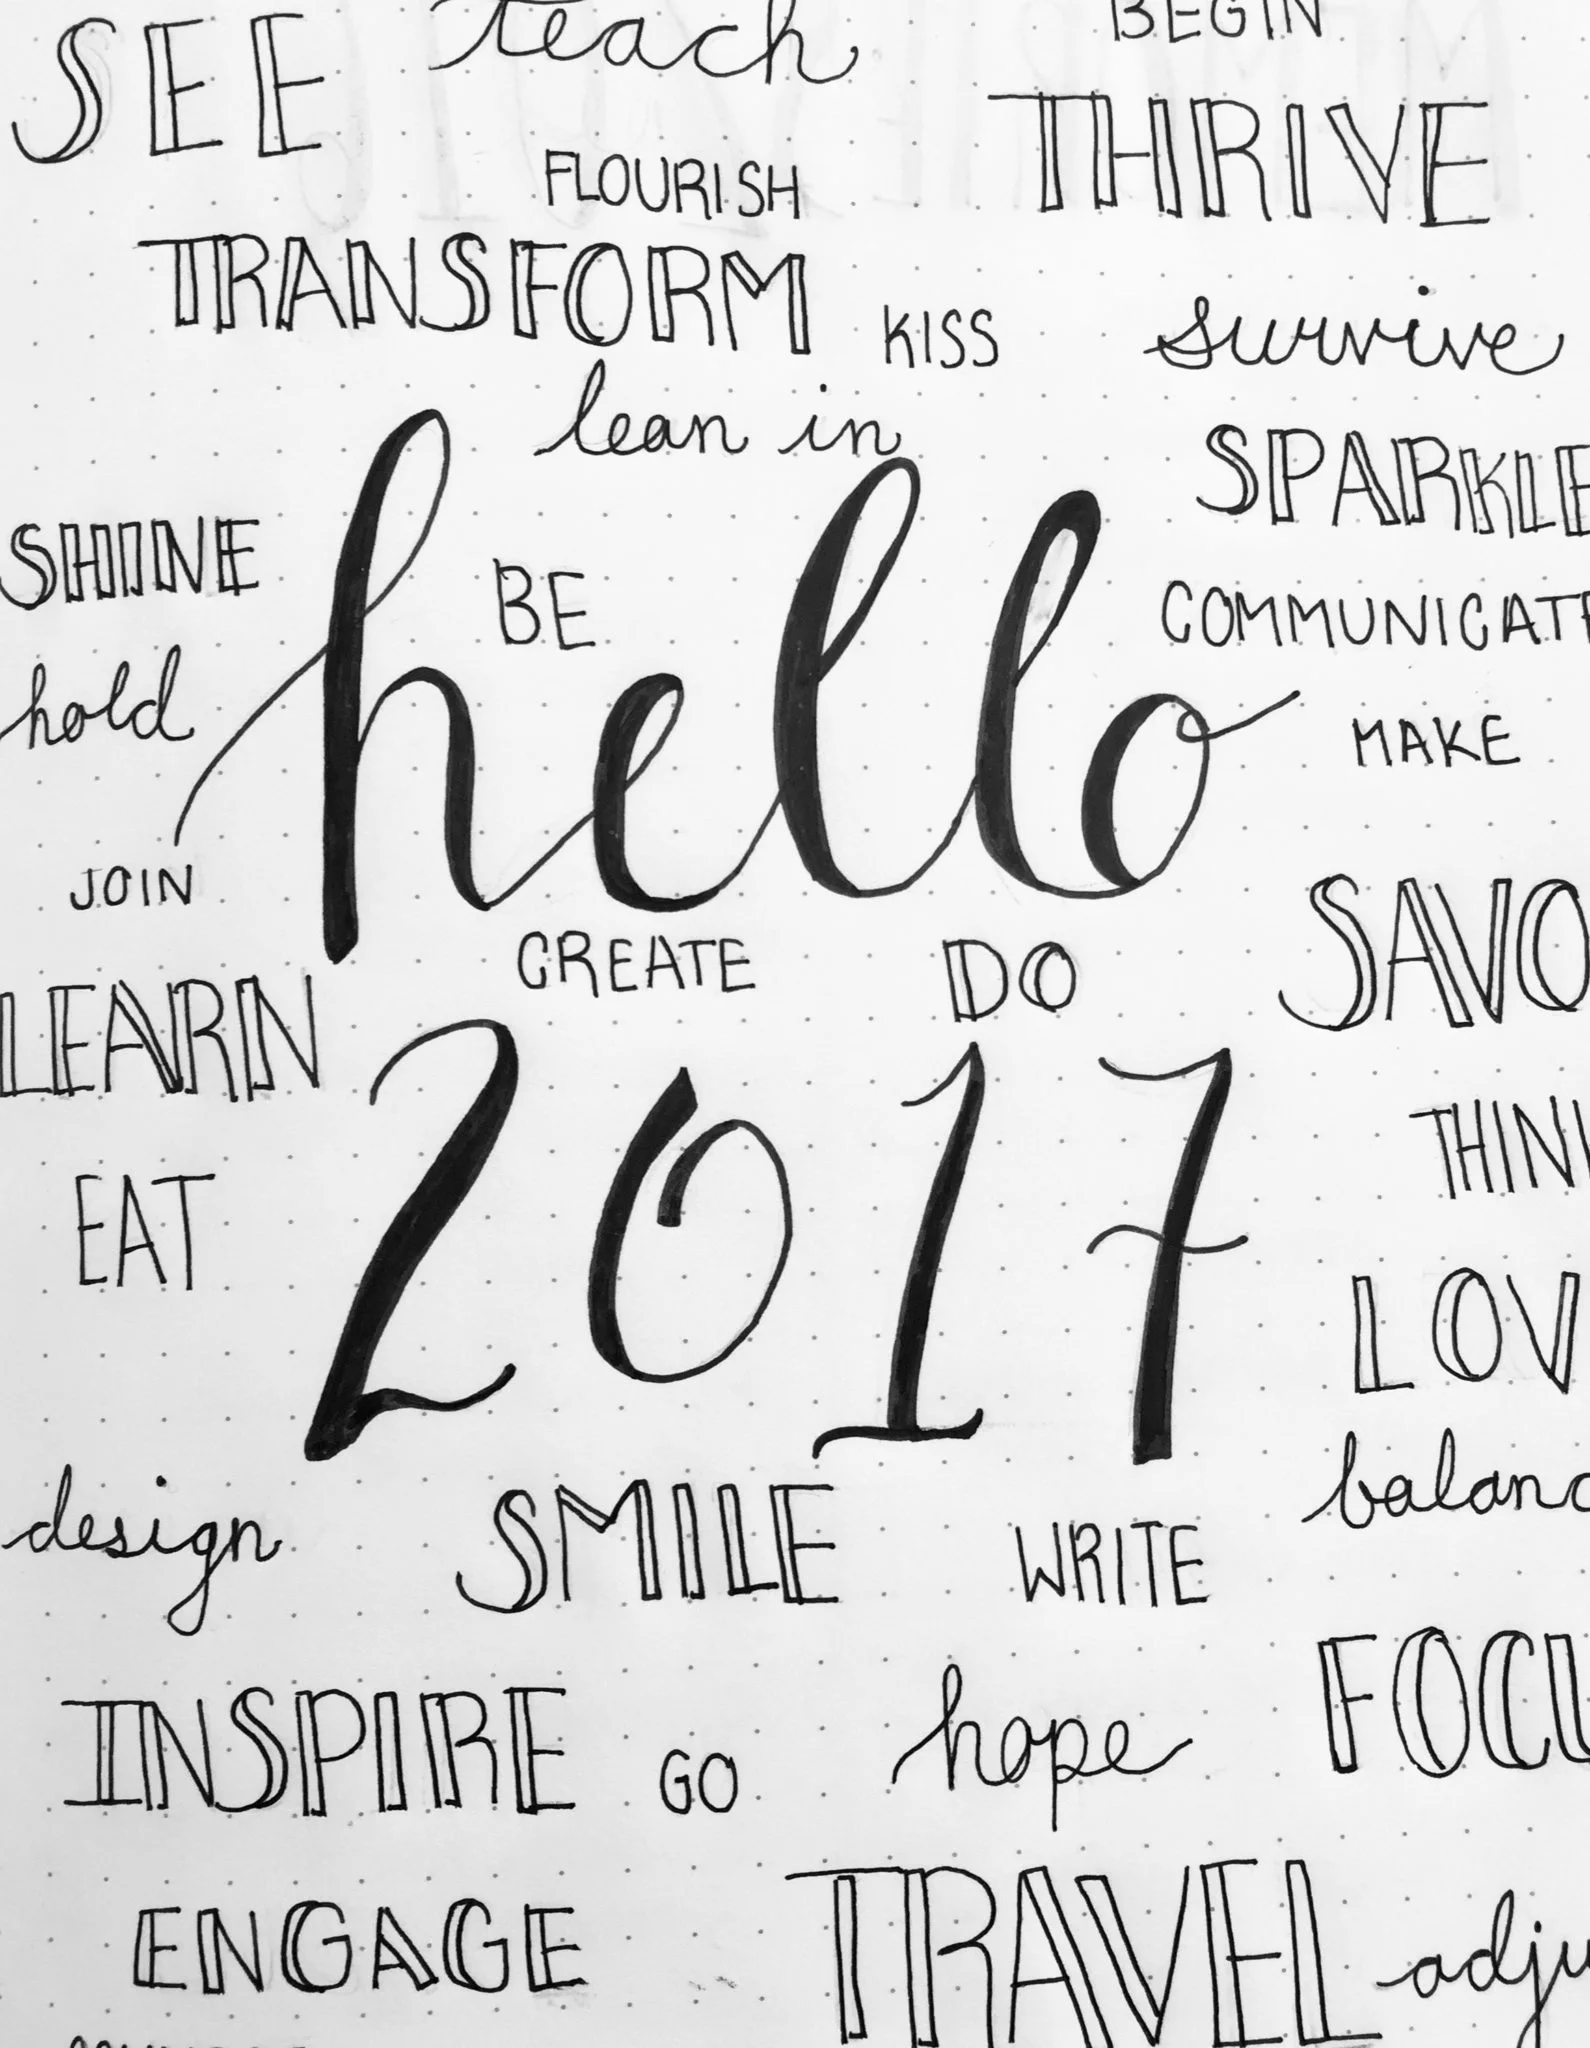 SEE
teach
BEGIN
THRIVE
FLOURISH
TRANSFORM
KISS
survive
lean in
SPARKLE
SHINE
BE
COMMUNICAT
hold
hello
MAKE
JOIN
SAVO
CREATE
DO
LEARN
2017
THIN
EAT
LOV
balanc
design
SMILE
WRITE
FOCU
INSPIRE
GO
hope
TRAVEL
ENGAGE
adju